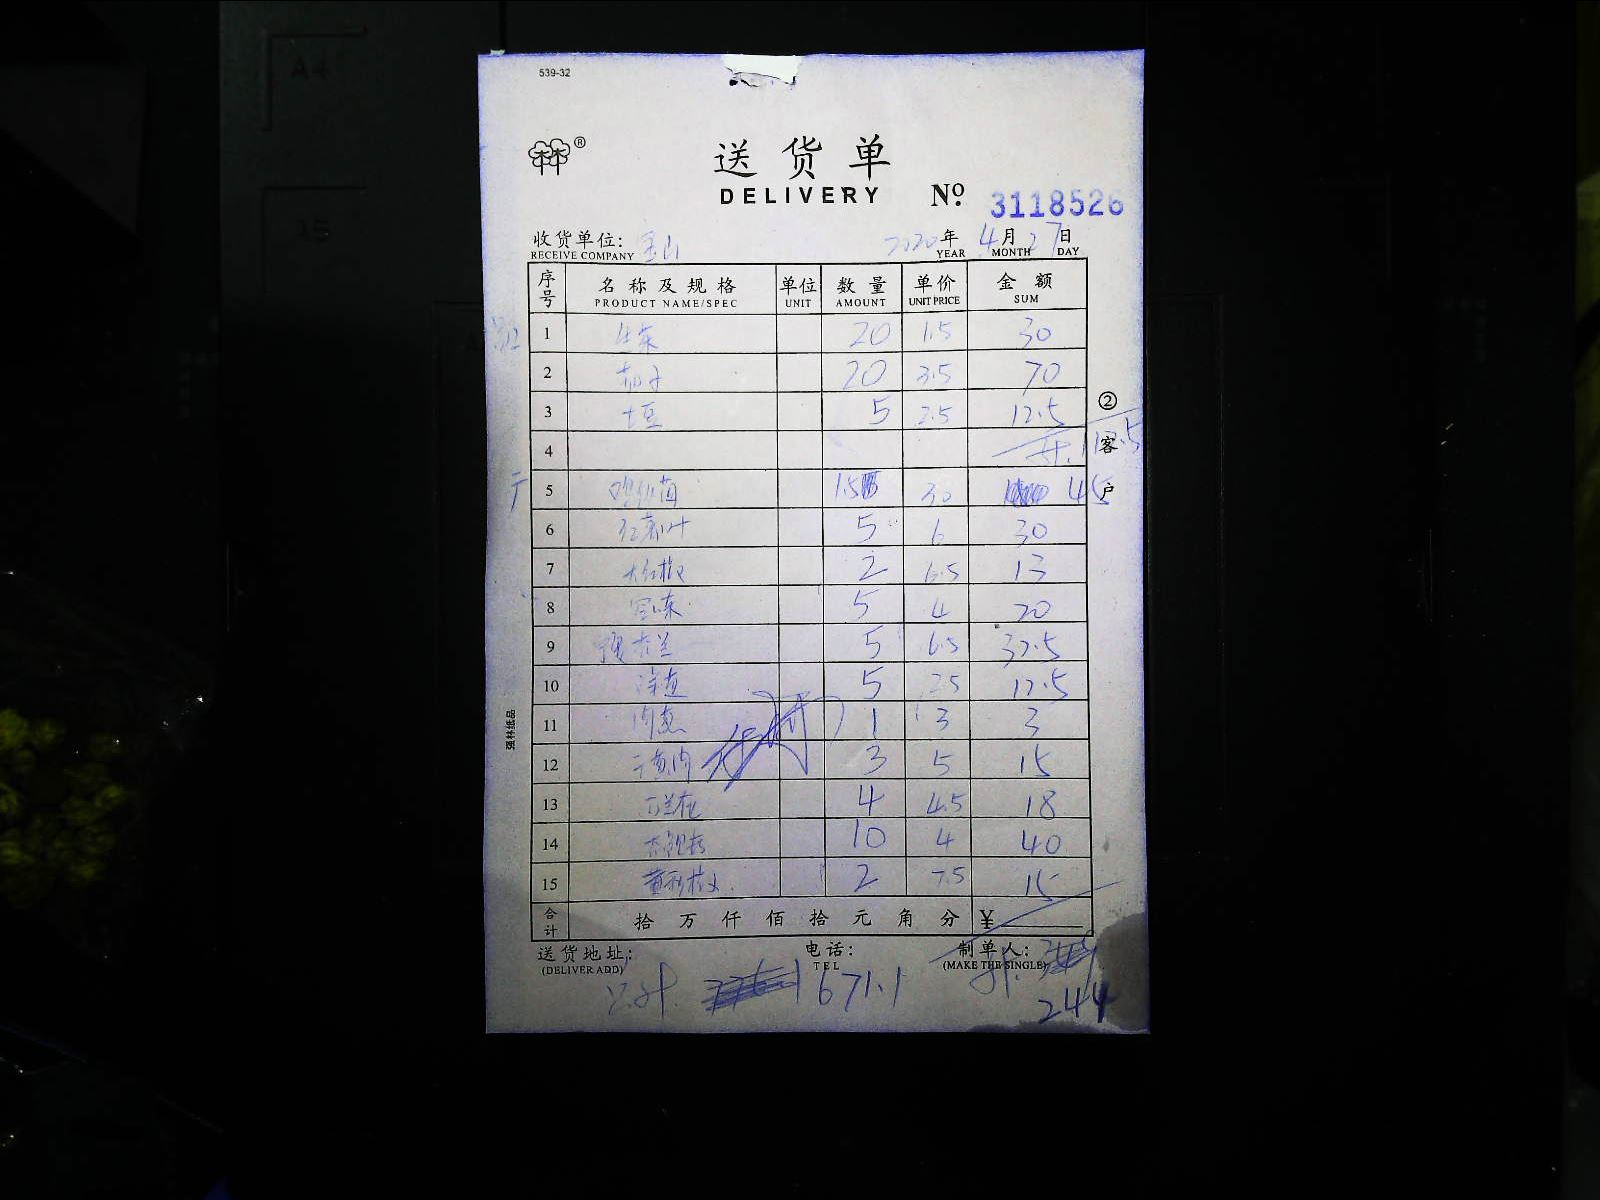 539-32
送货单
DELIVERY
№ 3118526
收货单位:
RECEIVE COMPANY
2020年 4月 27日
YEAR MONTH DAY
序号 名称及规格 单位 数量 单价 金额
PRODUCT NAME/SPEC UNIT AMOUNT UNIT PRICE SUM
1 生菜 20 1.5 30
2 茄子 20 3.5 70
3 土豆 5 2.5 12.5
② 客户
4 112.5
5 15 30 45
6 红薯叶 5 6 30
7 大红椒 2 6.5 13
8 5 4 20
9 5 6.5 32.5
10 5 2.5 12.5
11 肉葱 1 3 3
12 3 5 15
13 西兰花 4 4.5 18
14 10 4 40
15 黄彩椒 2 7.5 15
强林纸品
合计 拾 万 仟 佰 拾 元 角 分 ¥
送货地址: 电话: 制单人:
(DELIVER ADD) TEL (MAKE THE SINGLE)
671.1
244